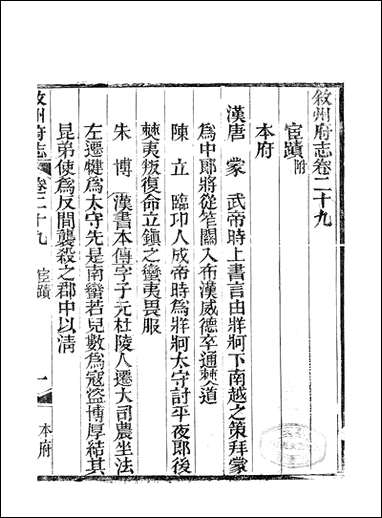 敘州府志卷二十九
宦蹟附
本府
漢唐蒙　武帝時上書言由牂牁下南越之策拜蒙
為中郎將從筰關入布漢威德卒通僰道
陳立　臨邛人成帝時為牂牁太守討平夜郎後
僰夷叛復命立鎮之蠻夷畏服
朱博　漢書本傳字子元杜陵人遷大司農坐法
左遷犍為太守先是南蠻若兒數為寇盜博厚結其
昆弟使為反間襲殺之郡中以清
敘州府志　卷二十九　宦蹟　一　本府